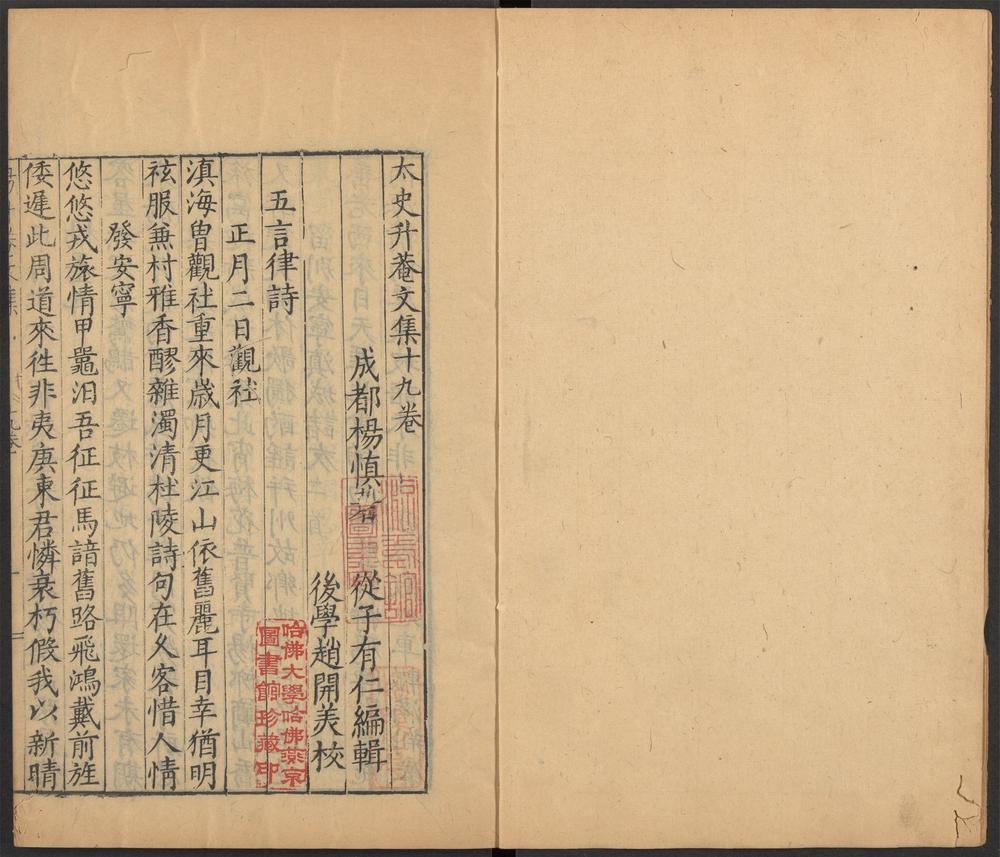 太史升菴文集十九卷
成都楊慎著 從子有仁編輯
後學趙開美校
五言律詩
正月二日觀社
滇海曾觀社重來歲月更江山依舊麗耳目幸猶明
袨服兼村雅香醪雜濁清杜陵詩句在久客惜人情
發安寧
悠悠戎旅情甲䵷汨吾征征馬諳舊路飛鴻戴前旌
倭遲此周道來徃非夷庚東君憐衰朽假我以新晴
哈佛大學哈佛燕京
圖書館珍藏印